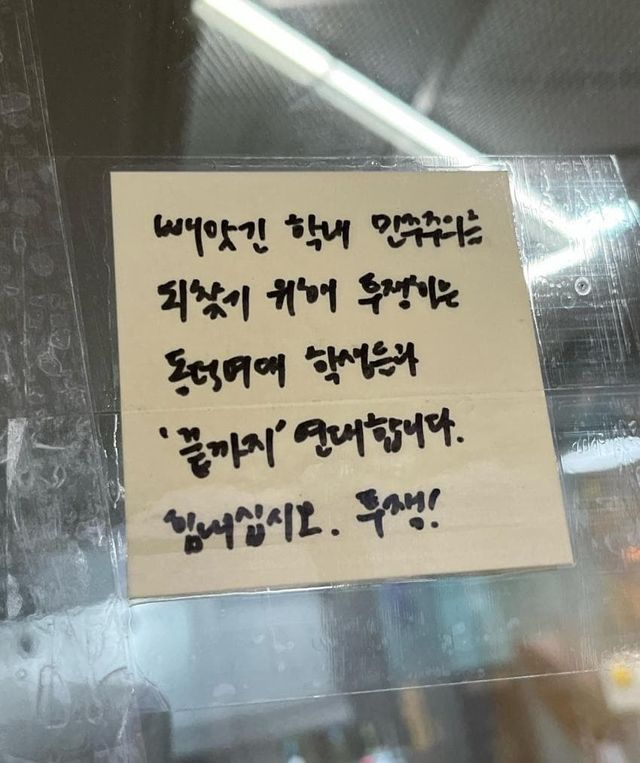 빼앗긴 학내 민주주의를
되찾기 위해 투쟁하는
동덕여대 학생들과
'끝까지' 연대합니다.
힘내십시오. 투쟁!